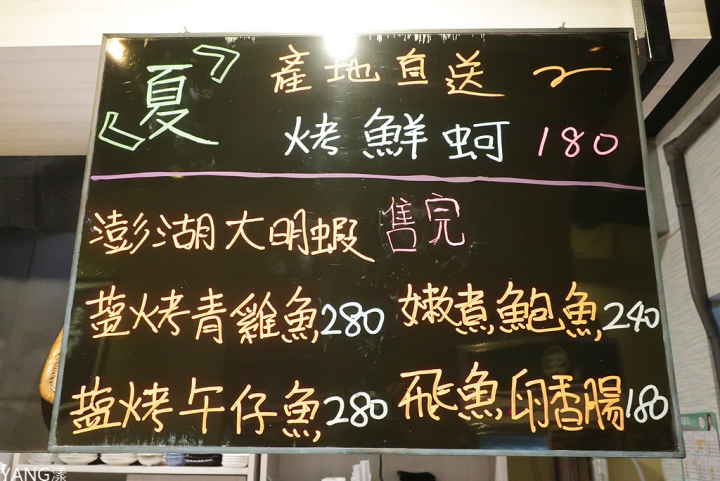 夏
產地直送
烤鮮蚵 180
澎湖大明蝦 售完
盐烤青雞魚280 嫩煮鮑魚240
盐烤午仔魚280 飛魚卵香腸180
YANG漾